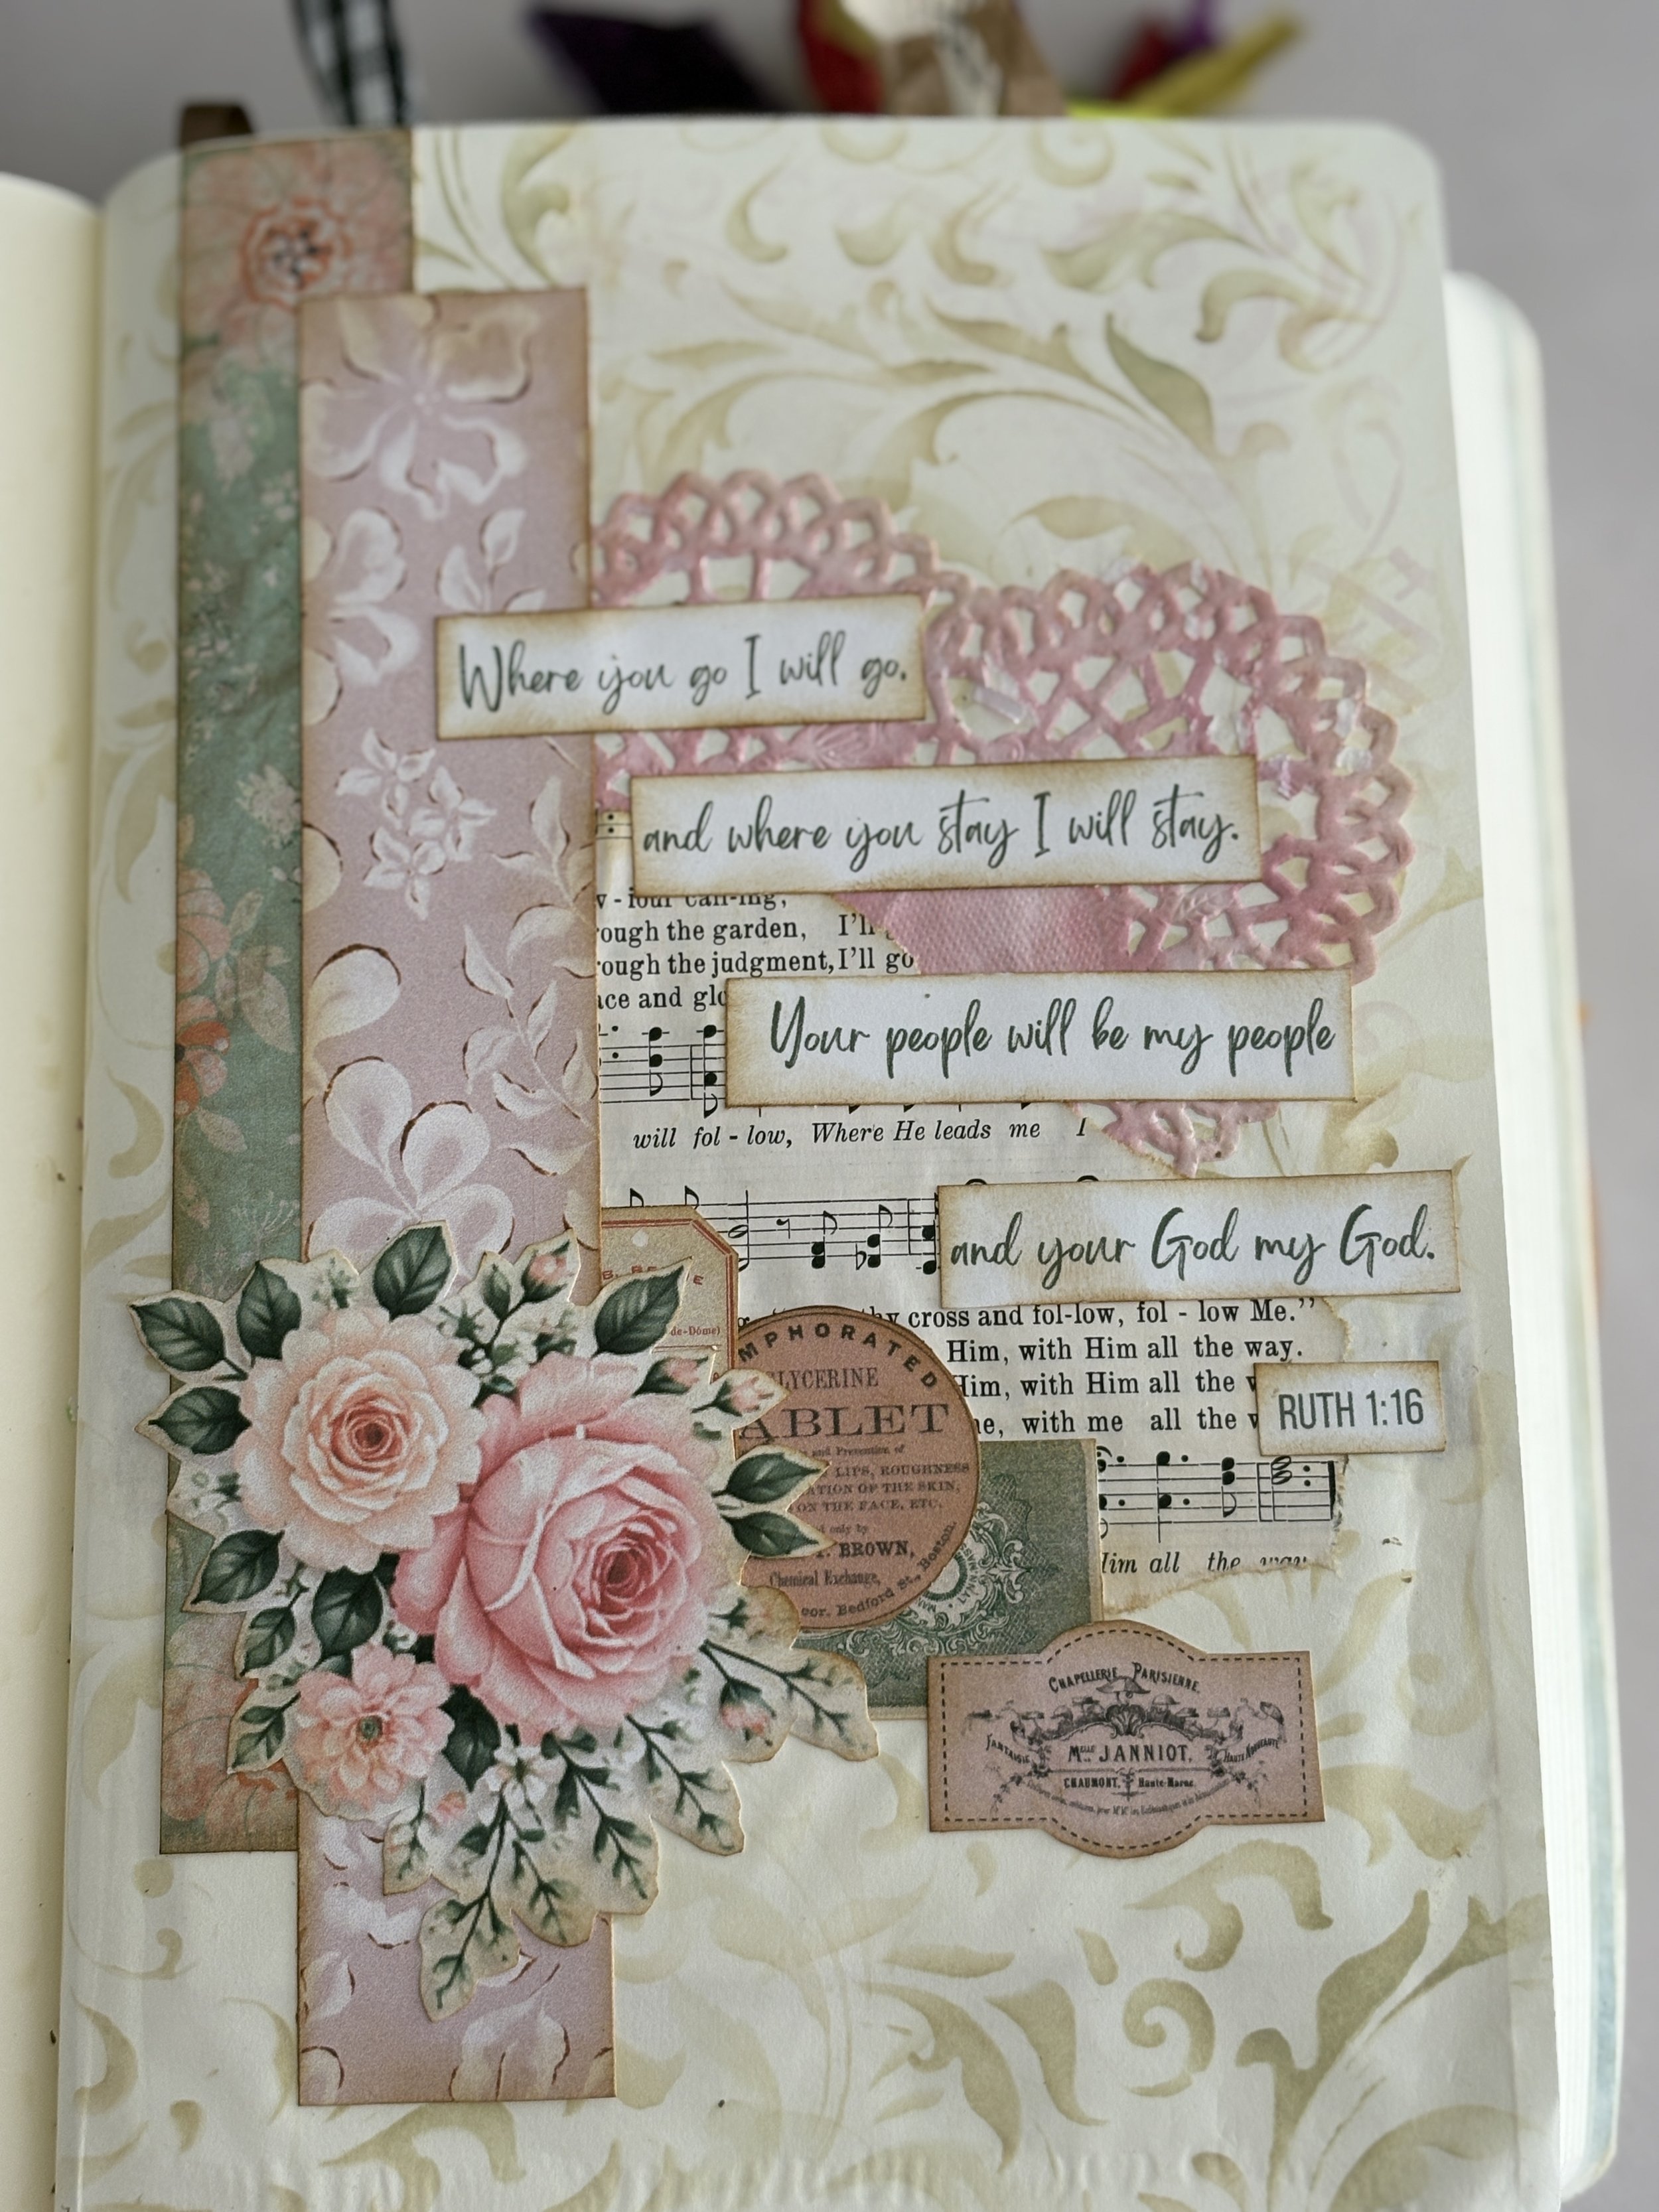 Where you go I will go.
and where you stay I will stay.
rough the garden, I'll
rough the judgment, I'll go
ace and glo
Your people will be my people
will fol - low, Where He leads me I
and your God my God.
cross and fol-low, fol - low Me."
Him, with Him all the way.
Him, with Him all the
me, with me all the
RUTH 1:16
Him all the way
de-Dôme)
MPHORATED
GLYCERINE
TABLET
and Prevention of
LIPS, ROUGHNESS
ATION OF THE SKIN,
ON THE FACE, ETC.
only by
BROWN,
Chemical Exchange,
cor. Bedford St., Boston.
CHAPELLERIE PARISIENNE.
FANTAISIE
HAUTE NOUVEAUTÉ
MELLE JANNIOT,
CHAUMONT, Haute-Marne